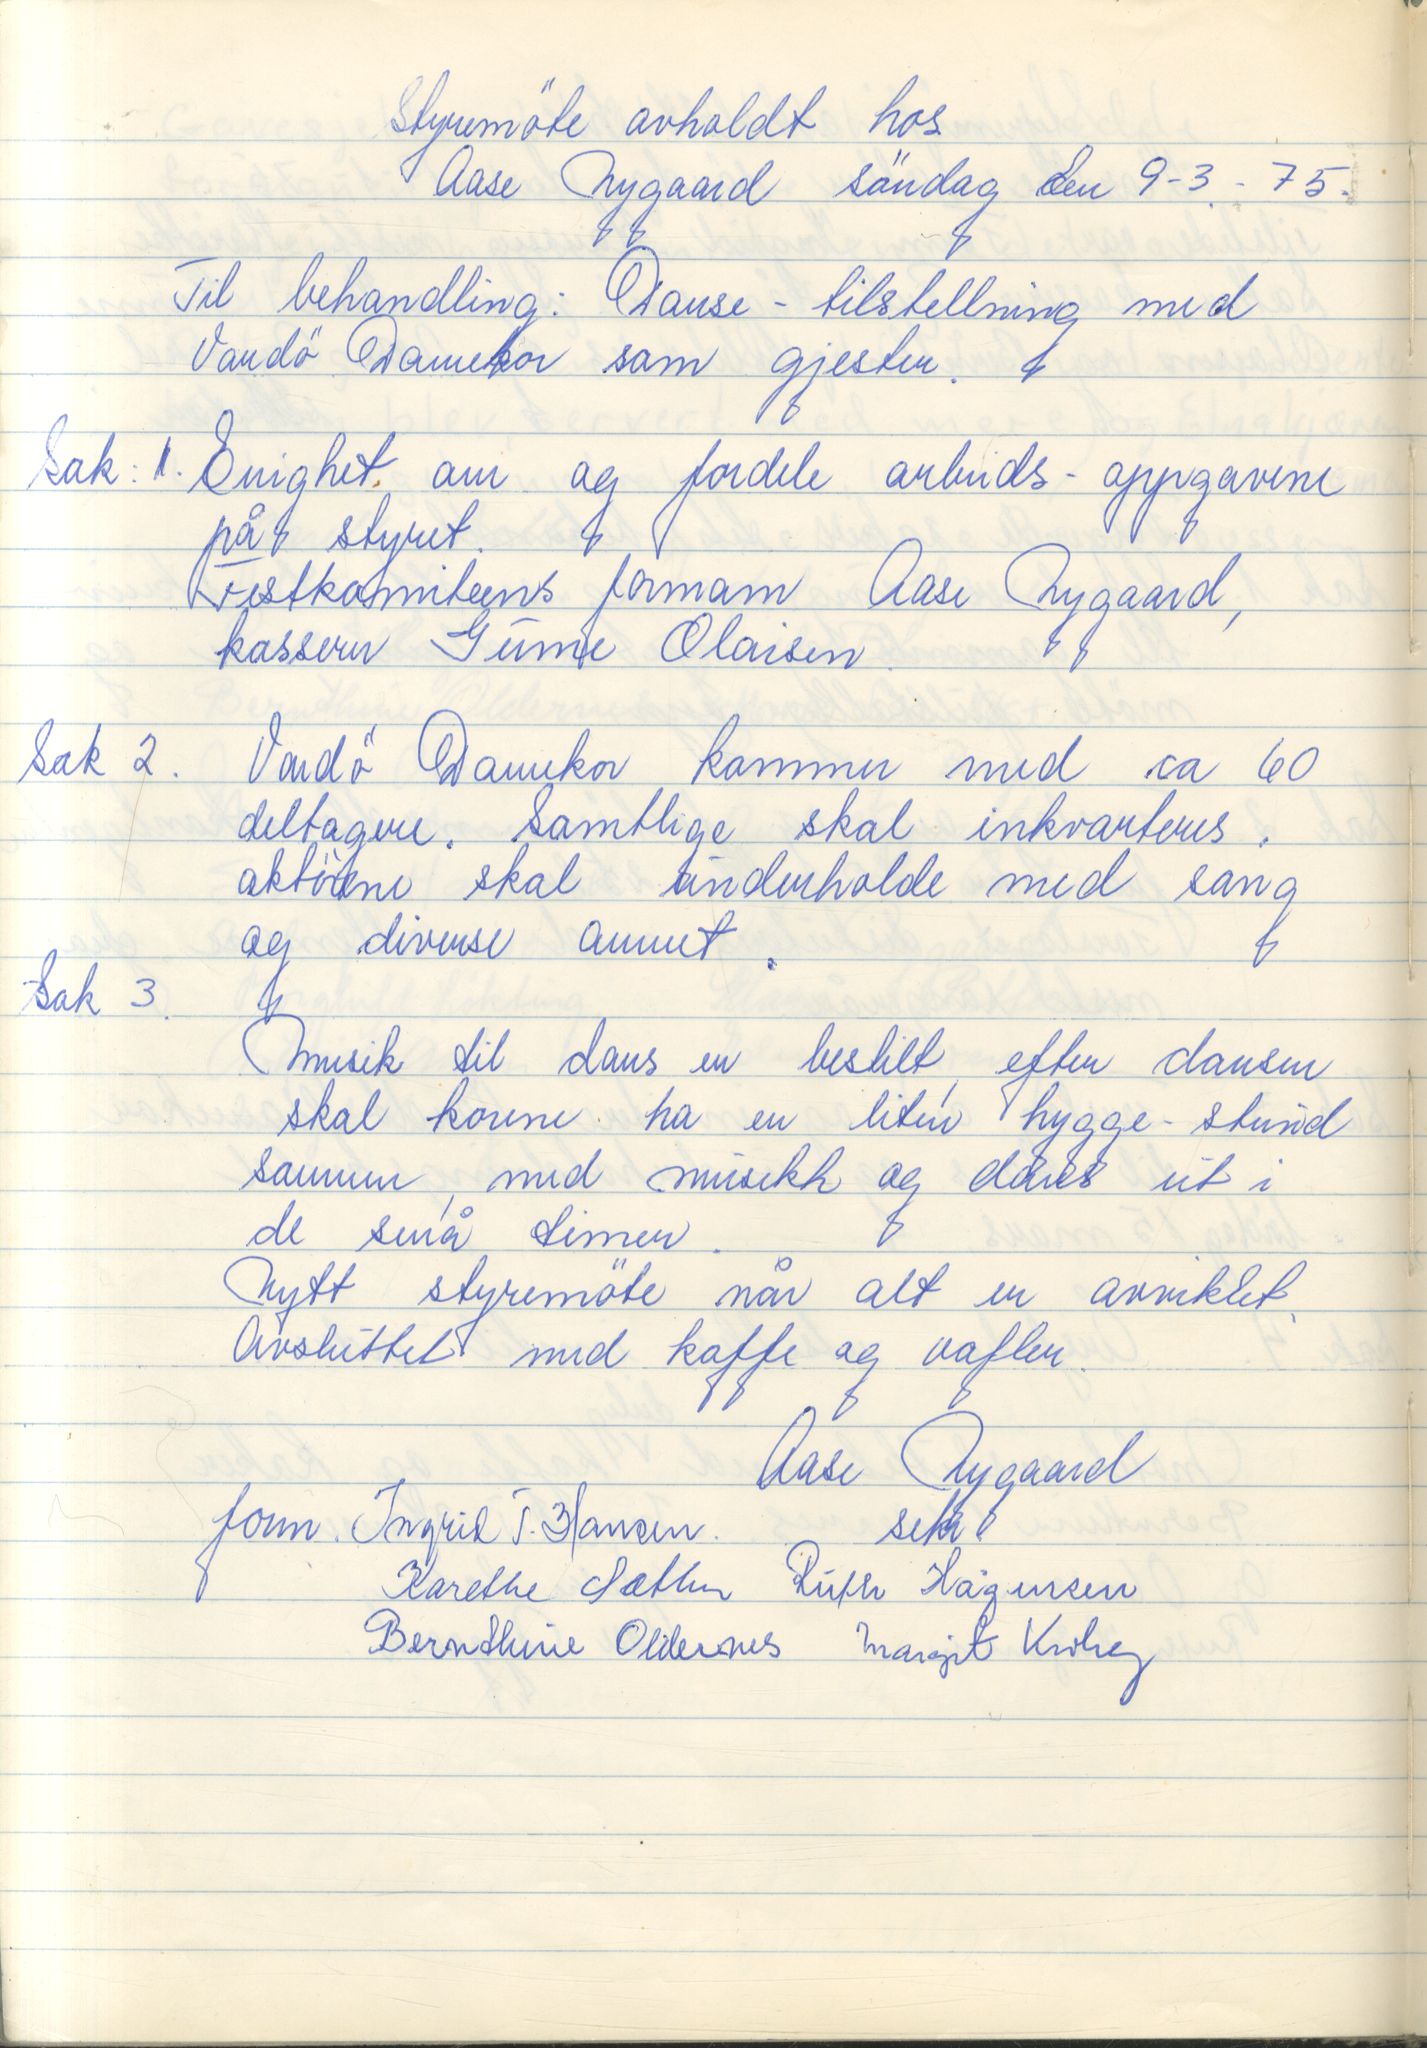 Styremöte avholdt hos
Aase Nygaard söndag den 9-3.-75.
Til behandling: Danse-tilstellning med
Vardö Damekor som gjester.
Sak: 1. Enighet om og fordele arbeids-oppgavene
på styret.
Festkomiteens formann Aase Nygaard,
kasserer Gunne Olaisen.
Sak 2. Vardö Damekor kommer med ca 60
deltagere. Samtlige skal inkvarteres.
aktörene skal underholde med sang
og diverse annet.
Sak 3.
Musik til dans er bestilt, efter dansen
skal korene ha en liten hygge-stund
sammen, med musikk og dans ut i
de små timer.
Nytt styremöte når alt er avviklet.
Avsluttet med kaffe og vafler.
Aase Nygaard
sekr
form. Ingrid T. Hansen.
Karethe Sæther Ruth Hågensen
Bernthine Oldernes Margit Krohg